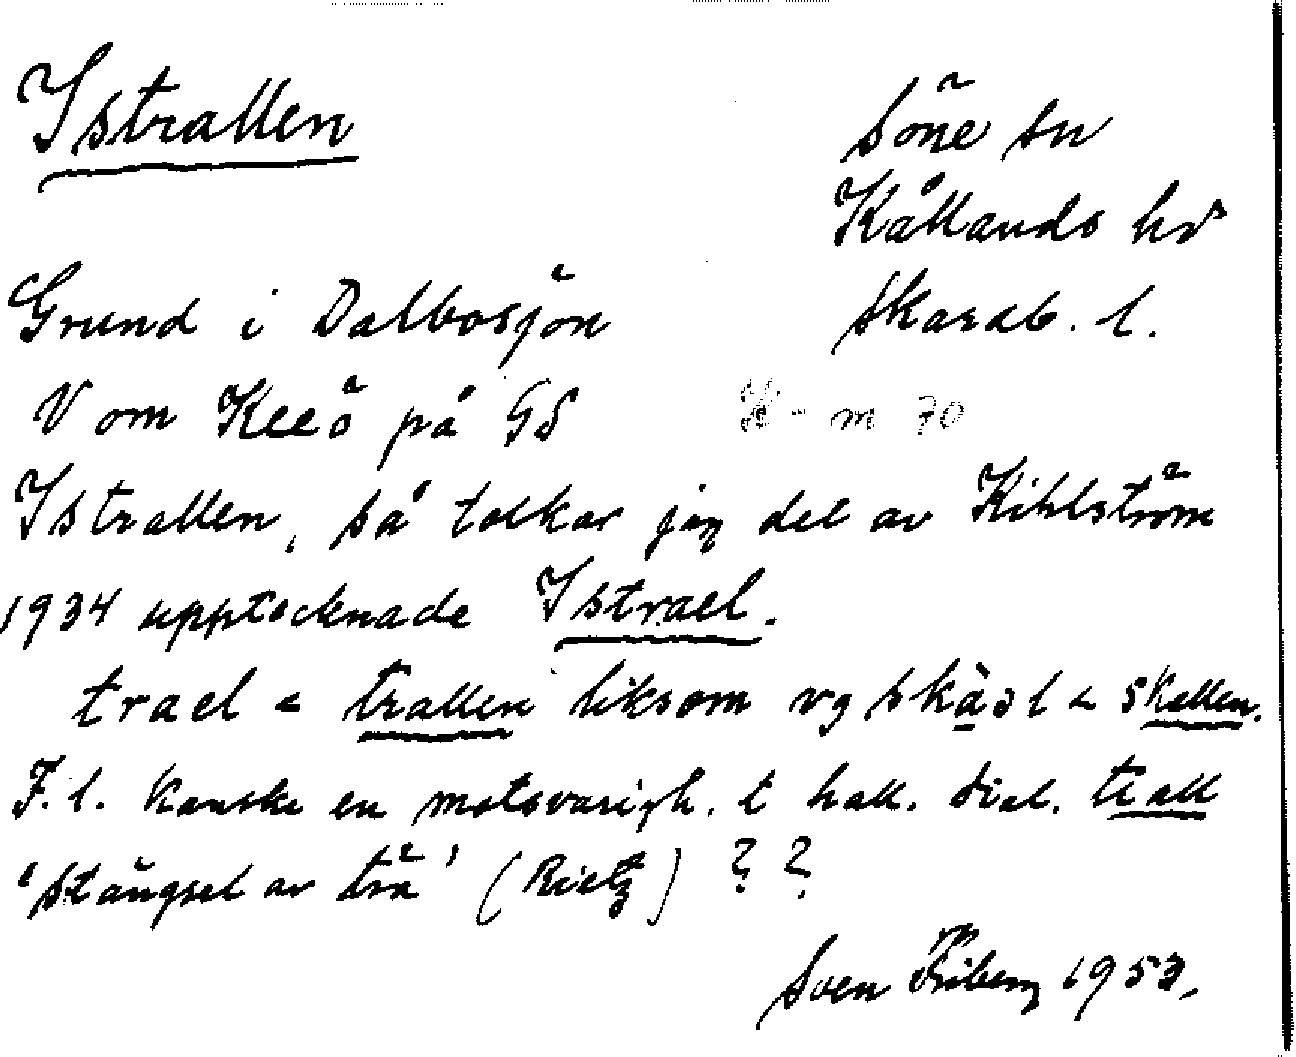 Istrallen
Söne sn
Kållands hd
Skarab. l.
Grund i Dalbosjön
V om Keeö på GS
m 70
Istrallen, så tolkar jag det av Kihlström
1934 upptecknade Istrael.
trael = trallen liksom vg skàəl = skallen.
F.l. kanske en motsvarigh. t hall. dial. trall
'stängsel av trä' (Rietz) ? ?
Sven Friberg 1953.